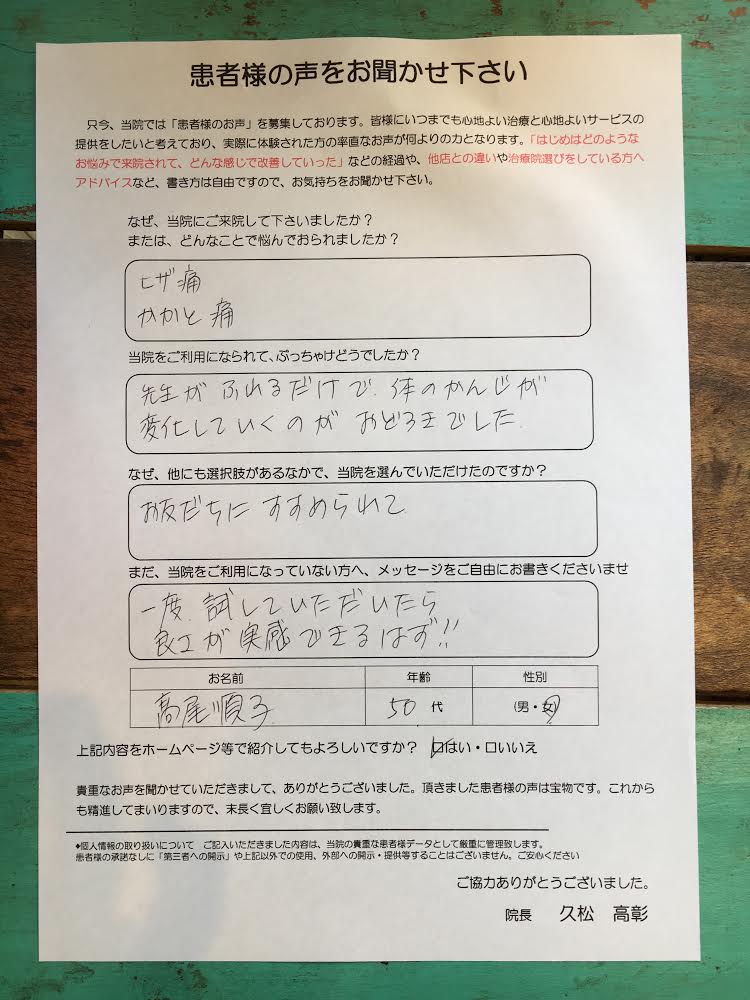 患者様の声をお聞かせ下さい
只今、当院では「患者様のお声」を募集しております。皆様にいつまでも心地よい治療と心地よいサービスの
提供をしたいと考えており、実際に体験された方の率直なお声が何よりの力となります。「はじめはどのような
お悩みで来院されて、どんな感じで改善していった」などの経過や、他店との違いや治療院選びをしている方へ
アドバイスなど、書き方は自由ですので、お気持ちをお聞かせ下さい。
なぜ、当院にご来院して下さいましたか?
または、どんなことで悩んでおられましたか?
ヒザ痛
かかと痛
当院をご利用になられて、ぶっちゃけどうでしたか?
先生がふれるだけで、体のかんじが
変化していくのがおどろきでした.
なぜ、他にも選択肢があるなかで、当院を選んでいただけたのですか?
お友だちにすすめられて
まだ、当院をご利用になっていない方へ、メッセージをご自由にお書きくださいませ
一度、試していただいたら
良さが実感できるはず!!
お名前 年齢 性別
高尾順子 50代 (男・女)
上記内容をホームページ等で紹介してもよろしいですか? ☑はい・口いいえ
貴重なお声を聞かせていただきまして、ありがとうございました。頂きました患者様の声は宝物です。これから
も精進してまいりますので、末長く宜しくお願い致します。
♦個人情報の取り扱いについて ご記入いただきました内容は、当院の貴重な患者様データとして厳重に管理致します。
患者様の承諾なしに「第三者への開示」や上記以外での使用、外部への開示・提供等することはございません。ご安心ください
ご協力ありがとうございました。
院長 久松 高彰